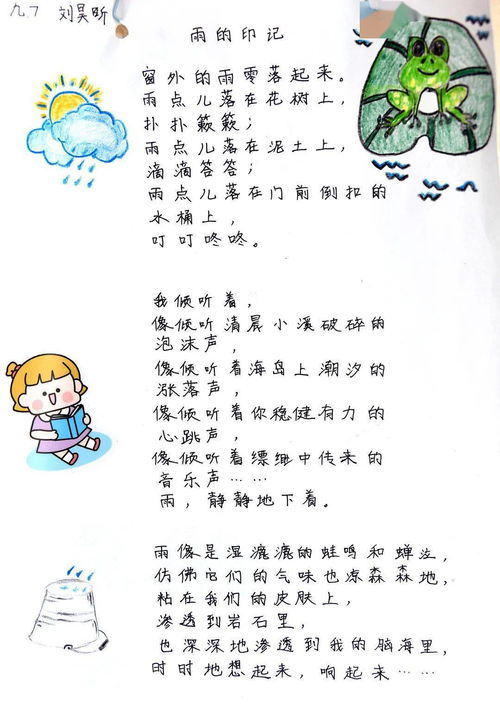 九.7 刘昊昕
雨的印记
窗外的雨零落起来。
雨点儿落在花树上，
扑扑簌簌；
雨点儿落在泥土上，
滴滴答答；
雨点儿落在门前倒扣的
水桶上，
叮叮咚咚。
我倾听着，
像倾听清晨小溪破碎的
泡沫声，
像倾听着海岛上潮汐的
涨落声，
像倾听着你稳健有力的
心跳声，
像倾听着缥缈中传来的
音乐声……
雨，静静地下着。
雨像是湿漉漉的蛙鸣和蝉泣，
仿佛它们的气味也凉森森地，
粘在我们的皮肤上，
渗透到岩石里，
也深深地渗透到我的脑海里，
时时地想起来，响起来……